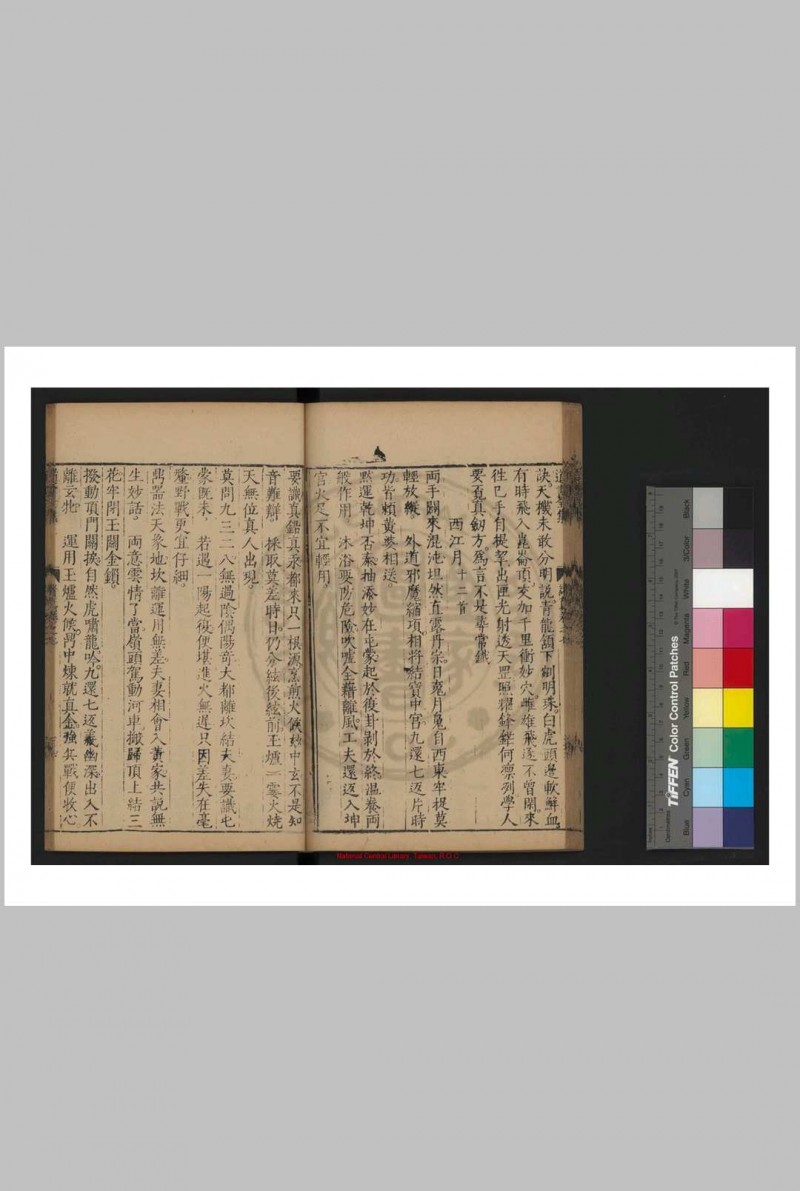 訣天機未敢分明說青龍頷下斸明珠白虎頭邊軟鮮血
有時飛入崑崙頂夾加千里衝妙穴雌雄飛逐不曾閑來
往巳乎自提挈出匣光射透天罡照耀鋒鋩何凛列學人
要覓真劔方為言不是尋常鐵
西江月十二首
両手闢來混沌坦然直露丹宗日烹月兎自西東牢捉莫
輕放縱 外道邪魔縮項相將結寶中宫九還七返片時
功皆頼黃婆相送
黙運乾坤否泰抽添妙在屯蒙起於後卦剥於終温養両
般作用 沐浴要防危險吹嘘全藉離風工夫還返入坤
宫火足不宜輕用
要識真鉛真汞都來只一根源烹煎火候妙中玄不是知
音難辯 採取莫差時日仍分絃後絃前玉爐一霎火燒
天無位真人出現
莫問九三二八無過陰偶陽奇大都離坎結夫妻要識屯
蒙既未 若遇一陽起復便堪進火無遲只因差失在毫
釐野戰更宜仔細
鼎器法天象地坎離運用無差夫妻相會入黃家共說無
生妙話 両意雲情了當嶺頭駕動河車搬歸頂上結三
花牢閉玉關金鎖
撥動頂門關捩自然虎嘯龍吟九還七返義幽深出入不
離玄牝 運用玉爐火候鼎中煉就真金強兵戰便牧心
National Central Library, Taiwan, R.O.C
TIFFEN Color Control Patches
Blue
Cyan
Green
Yellow
Red
Magenta
White
3/Color
Black